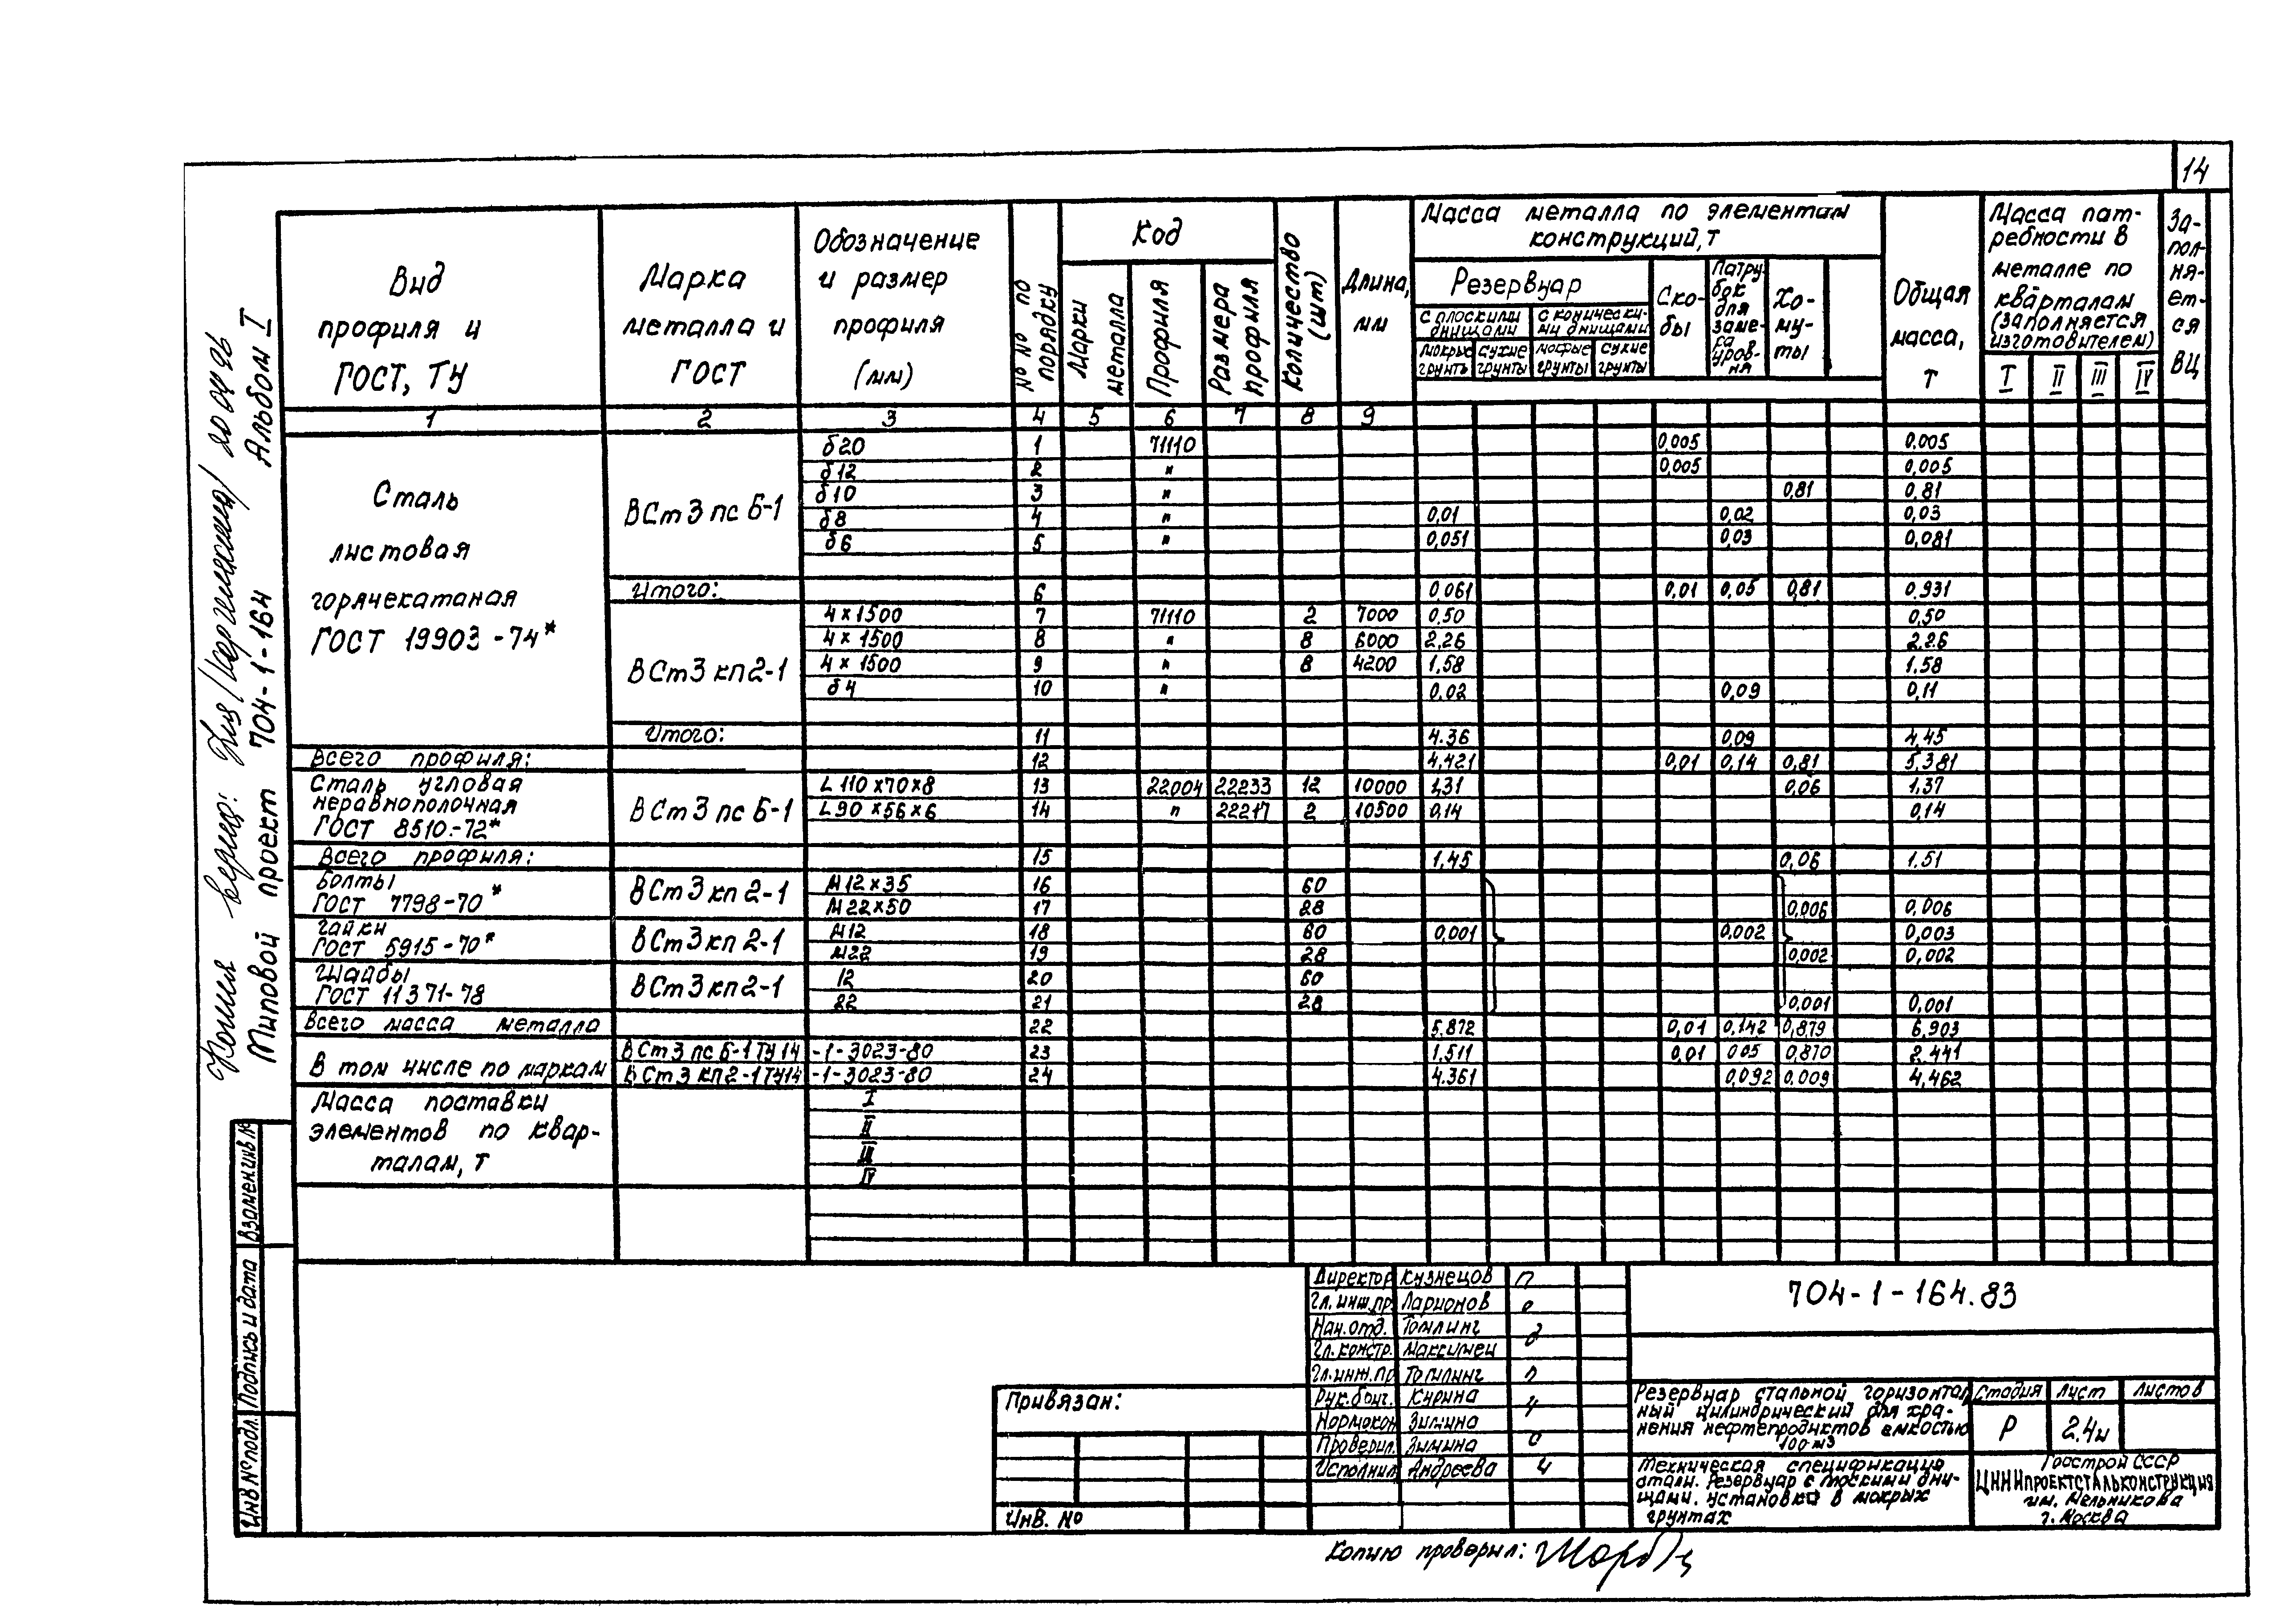 14
Вид профиля и ГОСТ, ТУ
Марка металла и ГОСТ
Обозначение и размер профиля (мм)
№ № по порядку
Код
Марки металла
Профиля
Размера профиля
Количество (шт)
Длина, мм
Масса металла по элементам конструкций, т
Резервуар
с плоскими днищами
с конически-ми днищами
мокрые грунты
сухие грунты
мокрые грунты
сухие грунты
Ско-бы
Патру бок для заме-ра уров-ня
Хо-му-ты
Общая масса, т
Масса пат-ребности в металле по кварталам (заполняется изготовителем)
I II III IV
За-пол-ня-ет-ся ВЦ
1 2 3 4 5 6 7 8 9
Сталь листовая горячекатаная ГОСТ 19903-74*
ВСт3пс6-1
δ20 1 71110 0,005 0.005
δ12 2 " 0,005 0,005
δ10 3 " 0,81 0,81
δ8 4 " 0,01 0,02 0,03
δ6 5 " 0,051 0,03 0,081
Итого: 6 0,061 0,01 0,05 0,81 0.931
ВСт3кп2-1
4×1500 7 71110 2 7000 0,50 0,50
4×1500 8 " 8 6000 2,26 2.26
4×1500 9 " 8 4200 1,58 1.58
δ4 10 " 0.02 0,09 0,11
Итого: 11 4.36 0,09 4,45
Всего профиля: 12 4,421 0,01 0,14 0,81 5,381
Сталь угловая неравнополочная ГОСТ 8510-72*
ВСт3пс6-1
L 110×70×8 13 22004 22233 12 10000 1,31 0,06 1,37
L 90×56×6 14 " 22217 2 10500 0,14 0,14
Всего профиля: 15 1,45 0,06 1.51
Болты ГОСТ 7798-70*
ВСт3кп2-1
М12×35 16 60
М22×50 17 28 0,006 0,006
гайки ГОСТ 5915-70*
ВСт3кп2-1
М12 18 60 0,001 0.002 0,003
М22 19 28 0,002 0,002
Шайбы ГОСТ 11371-78
ВСт3кп2-1
12 20 60
22 21 28 0,001 0,001
Всего масса металла 22 5.872 0,01 0,142 0,879 6,903
В том числе по маркам
ВСт3пс6-1 ТУ14-1-3023-80 23 1.511 0,01 005 0,870 2.441
ВСт3кп2-1 ТУ14-1-3023-80 24 4.361 0,092 0.009 4,462
Масса поставки элементов по квар-талам, т
I
II
III
IV
Типовой проект 704-1-164 Альбом I
Взамен.инв.№
Подпись и дата
Инв.№подл.
Директор Кузнецов
Гл.инж.пр. Ларионов
Нач.отд. Томлинг
Гл.констр. Максимец
Гл.инж.пр Томлинг
Рук.бриг. Курина
Нормокон Зимина
Проверил. Зимина
Исполнил Андреева
Привязан:
Инв. №
704-1-164.83
Резервуар стальной горизонталь
ный цилиндрический для хра-
нения нефтепродуктов емкостью
100 м3
Стадия Лист Листов
Р 2.4м
Техническая спецификация
стали. Резервуар с плоскими дни-
щами. установка в мокрых
грунтах
Госстрой СССР
ЦНИИпроектстальконструкция
им. Мельникова
г. Москва
Копию проверил: